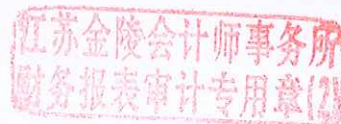 江苏金陵会计师事务所
财务报表审计专用章(2)